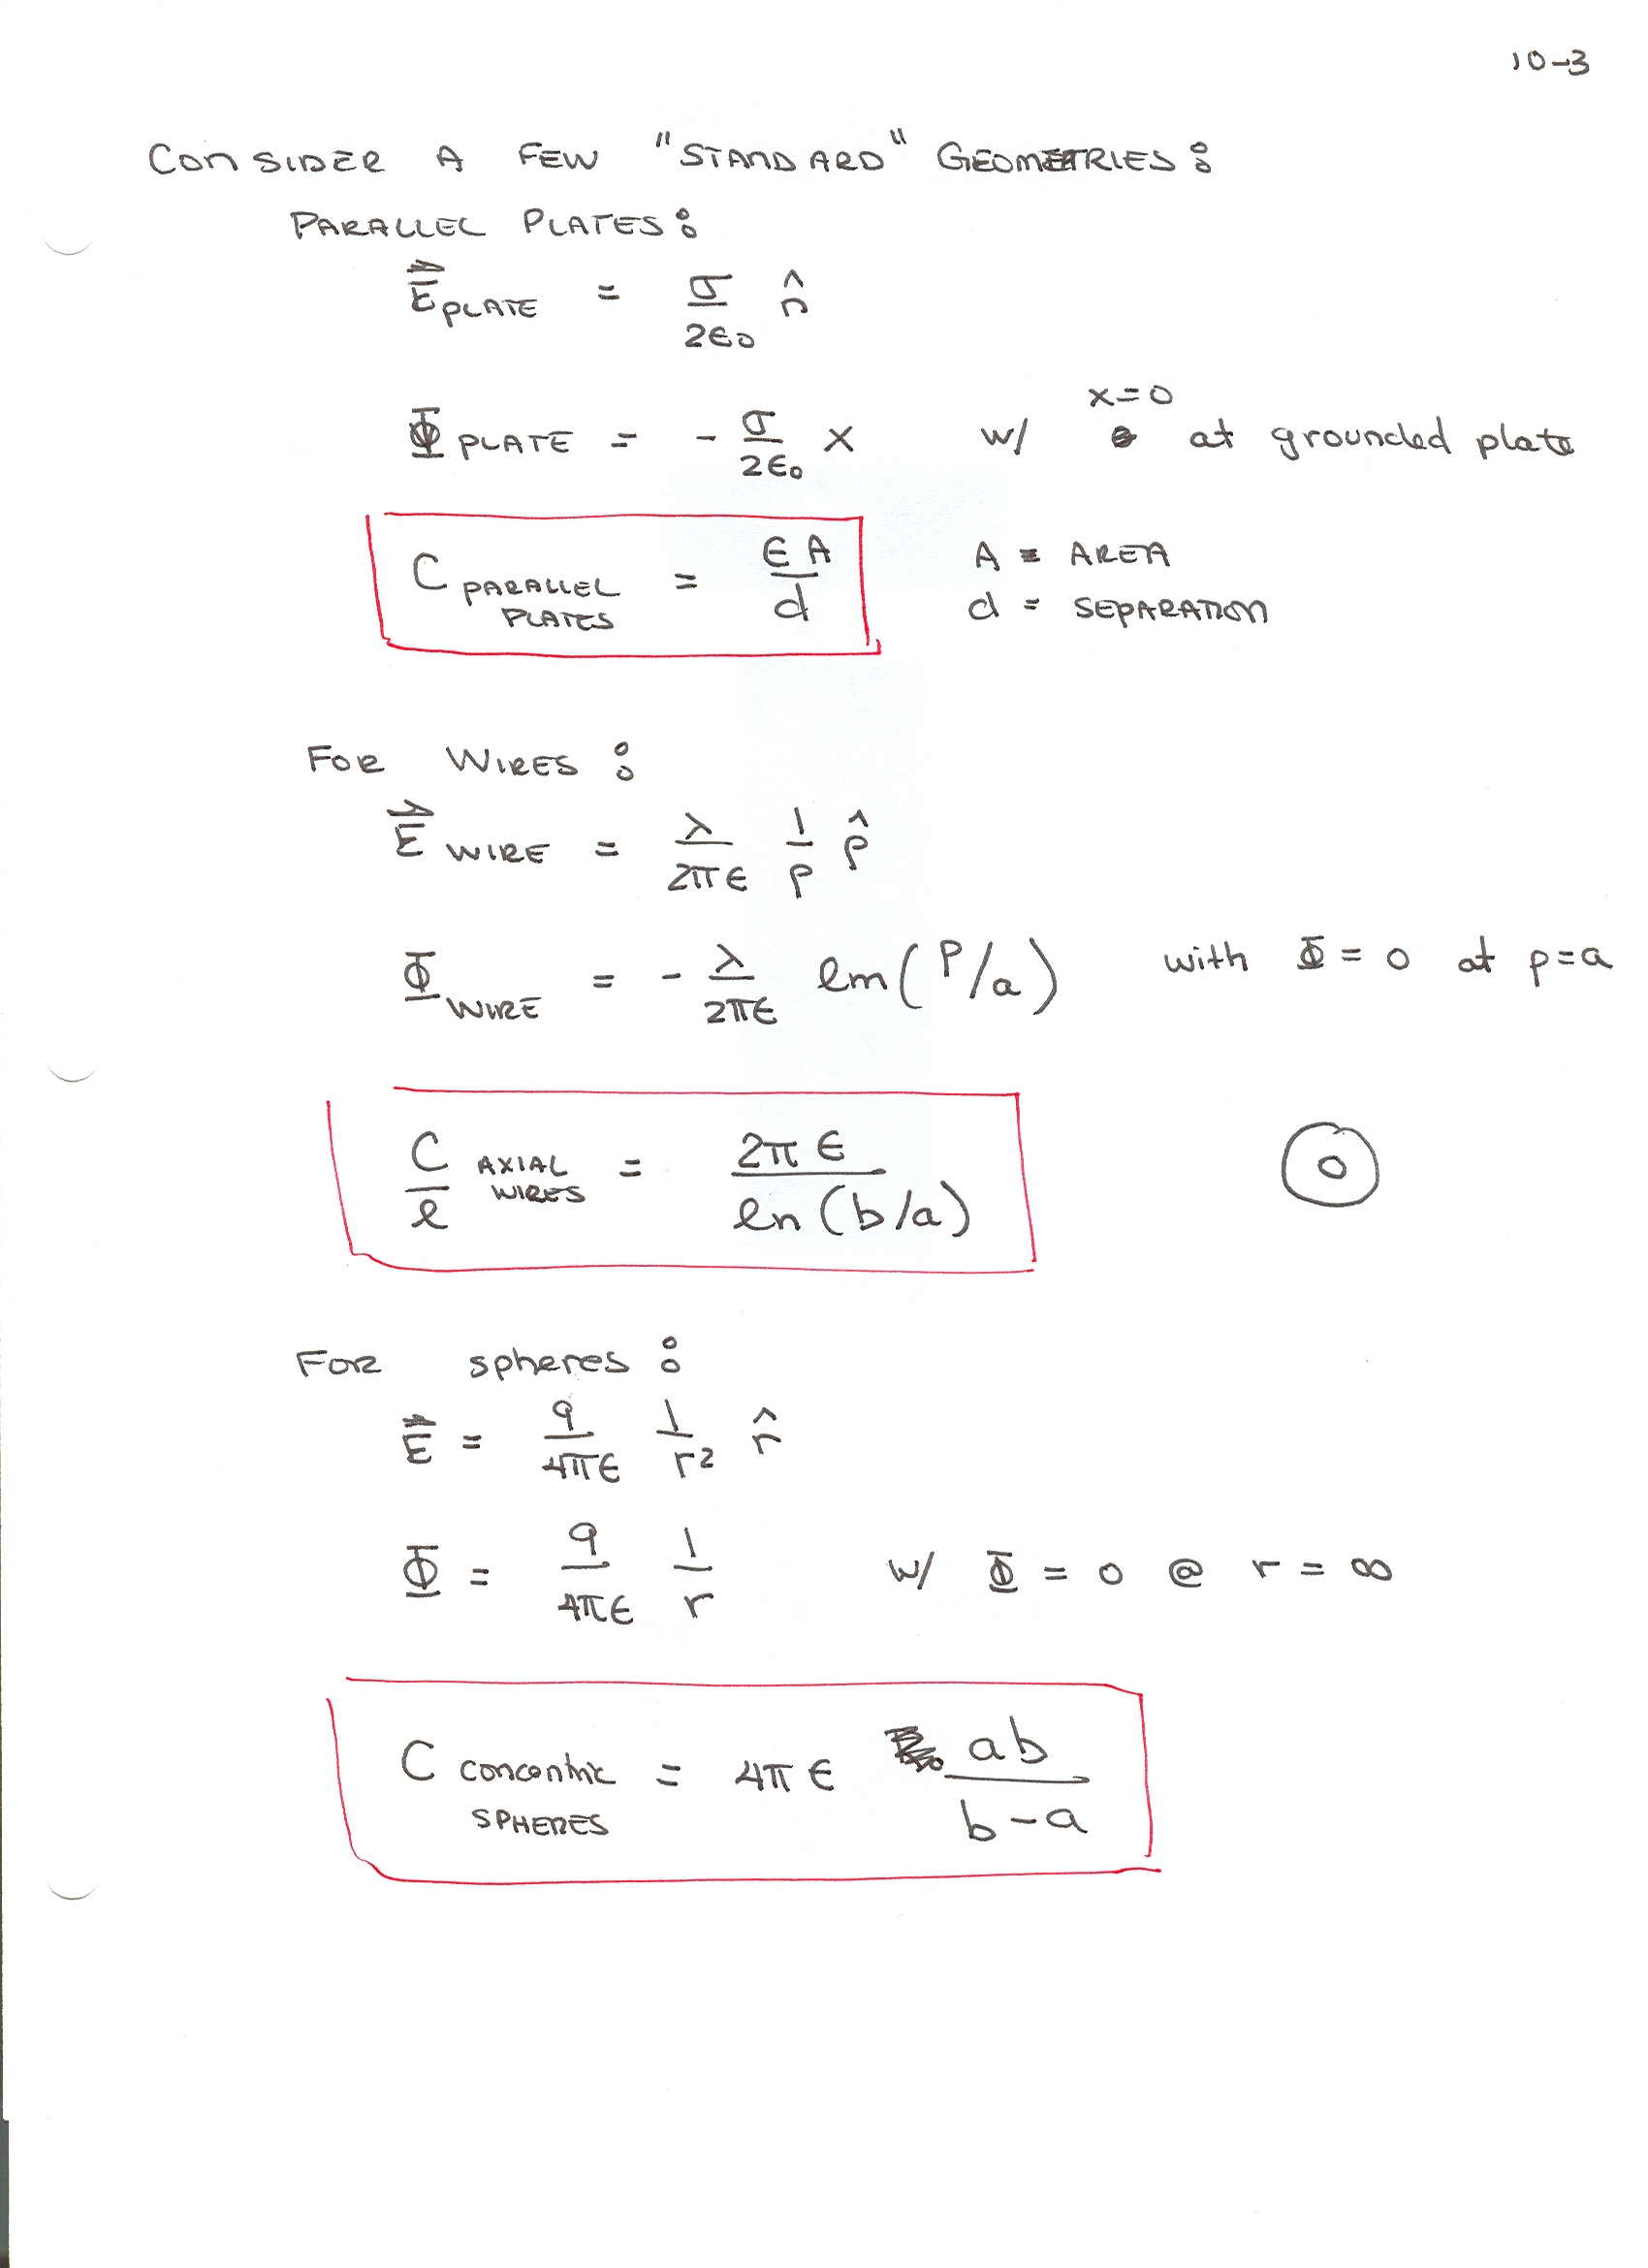 10-3
CONSIDER A FEW "STANDARD" GEOMETRIES:
PARALLEL PLATES:
E⃗ PLATE = σ/2ϵ₀ n̂
Φ PLATE = - σ/2ϵ₀ x w/ x=0 at grounded plate
C PARALLEL PLATES = ϵA/d A = AREA
d = SEPARATION
FOR WIRES:
E⃗ WIRE = λ/2πϵ 1/ρ ρ̂
Φ WIRE = - λ/2πϵ ln(ρ/a) with Φ = 0 at ρ=a
C/ℓ AXIAL WIRES = 2πϵ/ln(b/a)
FOR spheres:
E⃗ = q/4πϵ 1/r² r̂
Φ = q/4πϵ 1/r w/ Φ = 0 @ r = ∞
C concentric SPHERES = 4πϵ ab/b-a